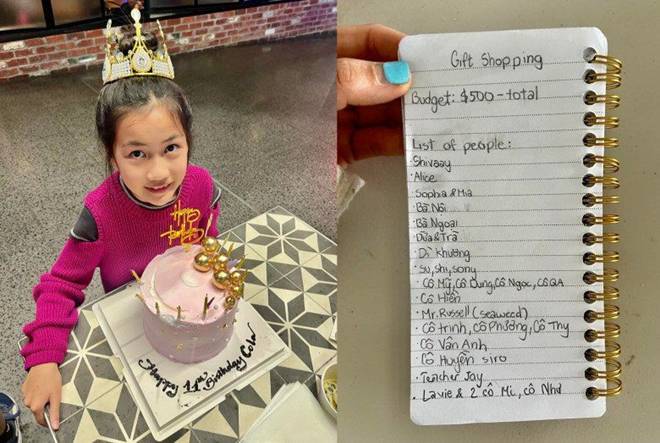 Happy
Birthday
Happy 11th
Birthday Cola
Gift Shopping
Budget: $500 - total
List of people:
· Shivaay
· Alice
· Sophia & Mia
· Bà Nội
· Bà Ngoại
· Dừa & Trà
· Dì Khương
· Su, shi, sony
· Cô Mỹ, Cô Dung, Cô Ngọc, Cô QA
· Cô Hiền
· Mr. Russell (seaweed)
· Cô Trinh, Cô Phương, Cô Thy
· Cô Vân Anh
· Cô Huyền siro
· Teacher Jay
· Lavie & 2 cô Mi, cô Nhã